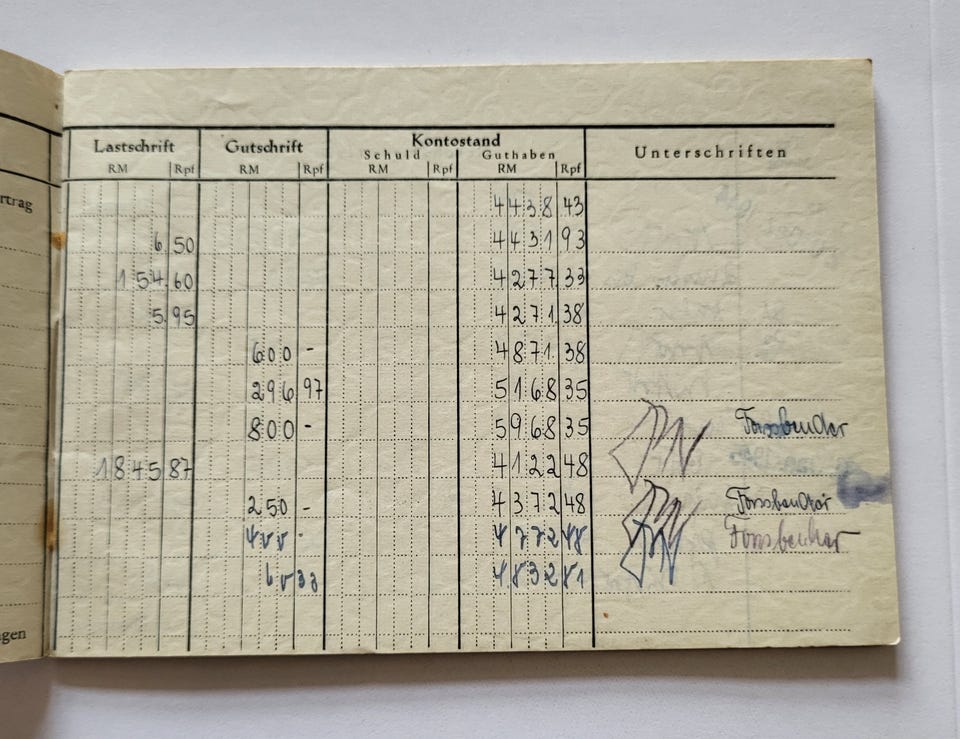 Lastschrift Gutschrift Kontostand Unterschriften
Schuld Guthaben
RM Rpf RM Rpf RM Rpf RM Rpf
rtrag
4438 43
6 50 4431 93
154 60 4277 33
5 95 4271 38
600 - 4871 38
296 97 5168 35
800 - 5968 35 Fassbender
1845 87 4122 48
250 - 4372 48 Fassbender
400 - 4772 48 Fassbender
60 33 4832 81
gen